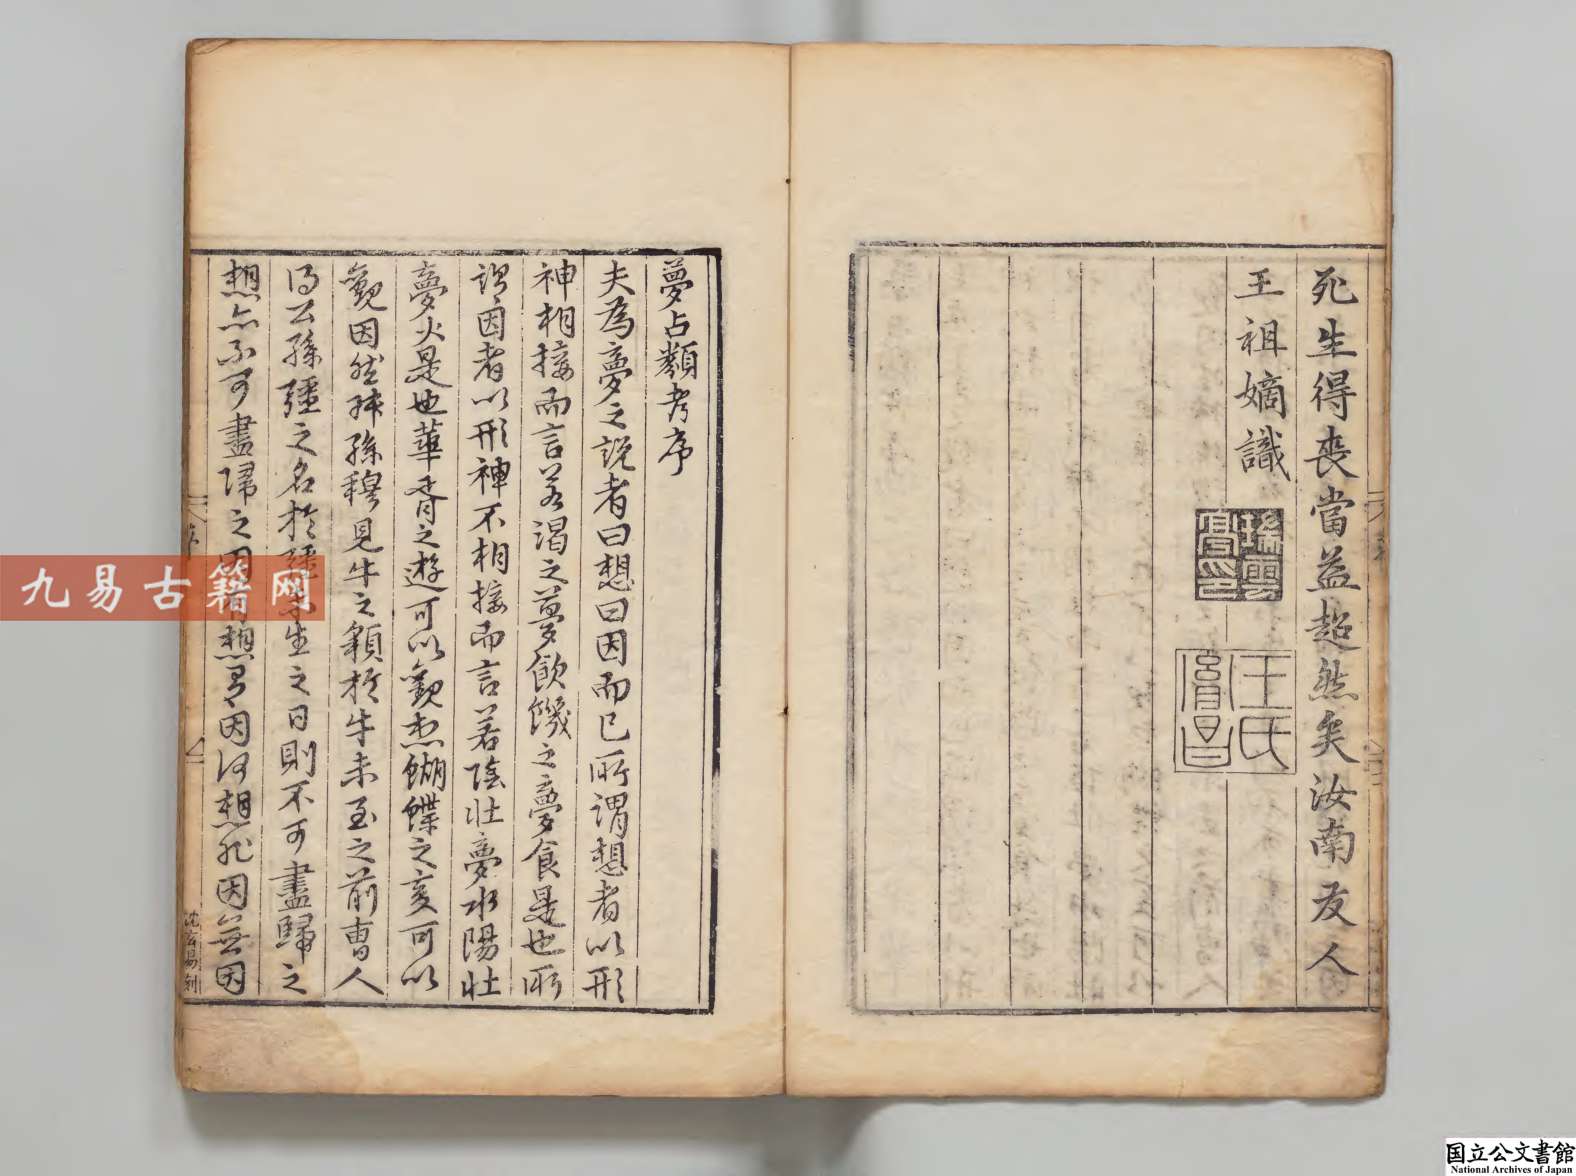 死生得喪當益超然矣汝南友人
王祖嫡識
瑞雲
王氏
胤昌
夢占類考序
夫為夢之説者曰想曰因而已所謂想者以形
神相接而言若渴之夢飲饑之夢食是也所
謂因者以形神不相接而言若陰壯夢水陽壯
夢火是也華胥之遊可以觀想蝴蝶之変可以
觀因然叔孫穆見牛之貌於牛未至之前曹人
得公孫彊之名於彊未生之日則不可盡歸之
想亦不可盡歸之因葢想有因因有想非因無因
沈玄易刻
九易古籍网
国立公文書館
National Archives of Japan